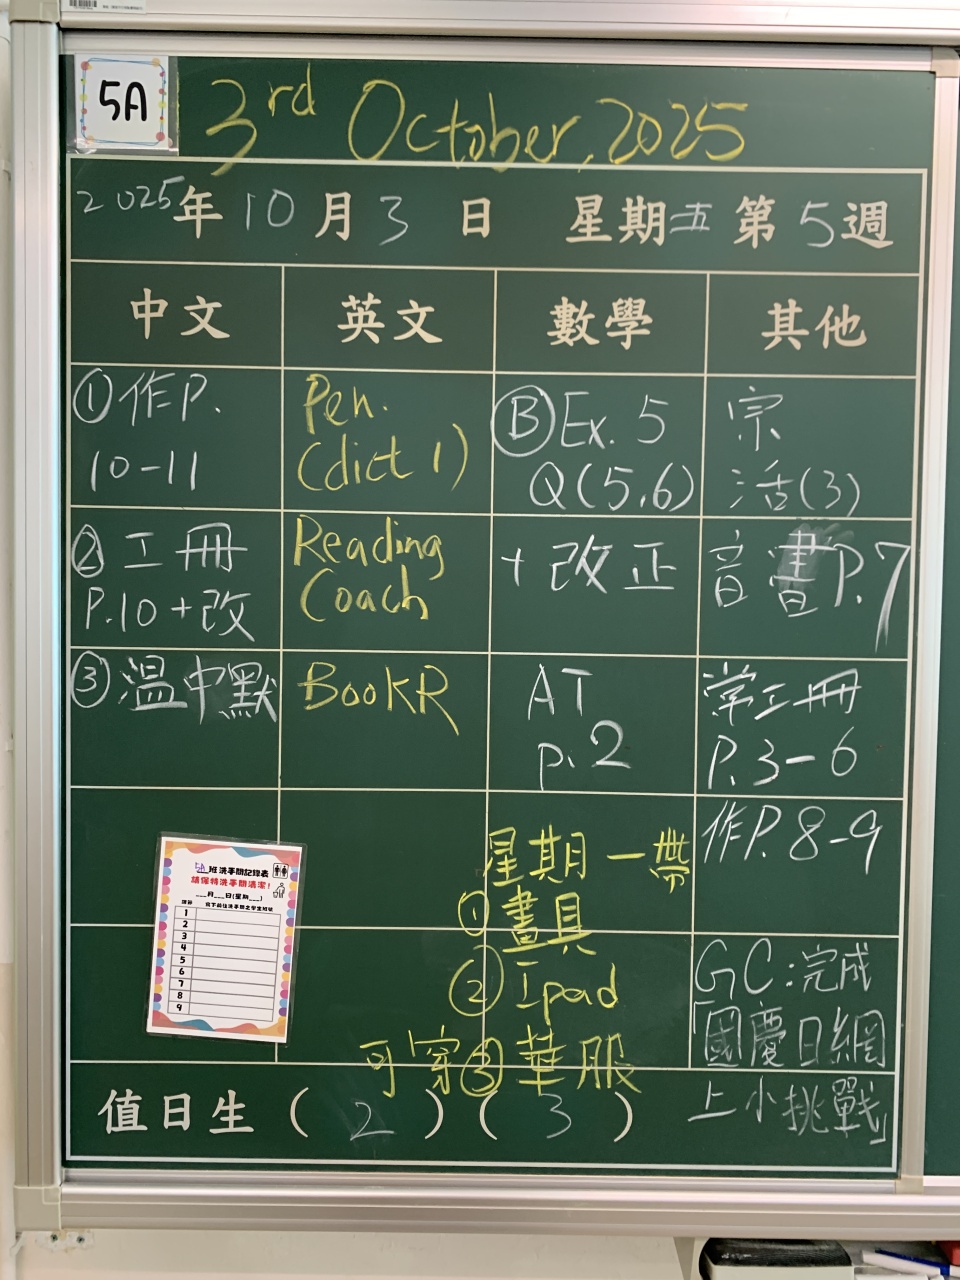 5A
3rd October, 2025
2025年 10 月 3 日 星期五 第 5 週
中文 英文 數學 其他
①作P.
10-11
②工冊
P.10+改
③溫中默
Pen.
(dict 1)
Reading
Coach
BookR
ⒷEx. 5
Q(5,6)
+改正
AT
p.2
宗
活(3)
音書P.7
常工冊
P.3-6
作P.8-9
GC:完成
「國慶日網
上小挑戰」
星期一帶
①畫具
②Ipad
可穿③華服
5A班洗手間記錄表
請保持洗手間清潔!
___月___日(星期___)
1
2
3
4
5
6
7
8
9
值日生 ( 2 ) ( 3 )